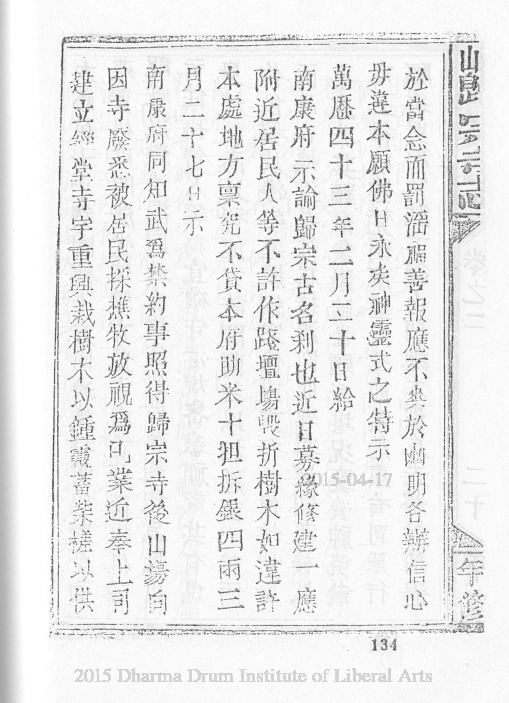 於當念而罰淫福善報應不爽於幽明各辦信心
毋違本願佛日永矣神靈式之特示
萬曆四十三年二月二十日給
南康府 示諭歸宗古名刹也近日募緣修建一應
附近居民人等不許作踐壇場毀折樹木如違許
本處地方稟究不貸本府助米十担折銀四兩三
月二十七日示
南康府同知武爲禁約事照得歸宗寺後山場向
因寺廢悉被居民採樵牧放視爲己業近奉上司
建立經堂寺宇重興栽樹木以鍾靈蓄柴槎以供
134
2015-04-17
2015 Dharma Drum Institute of Liberal Arts